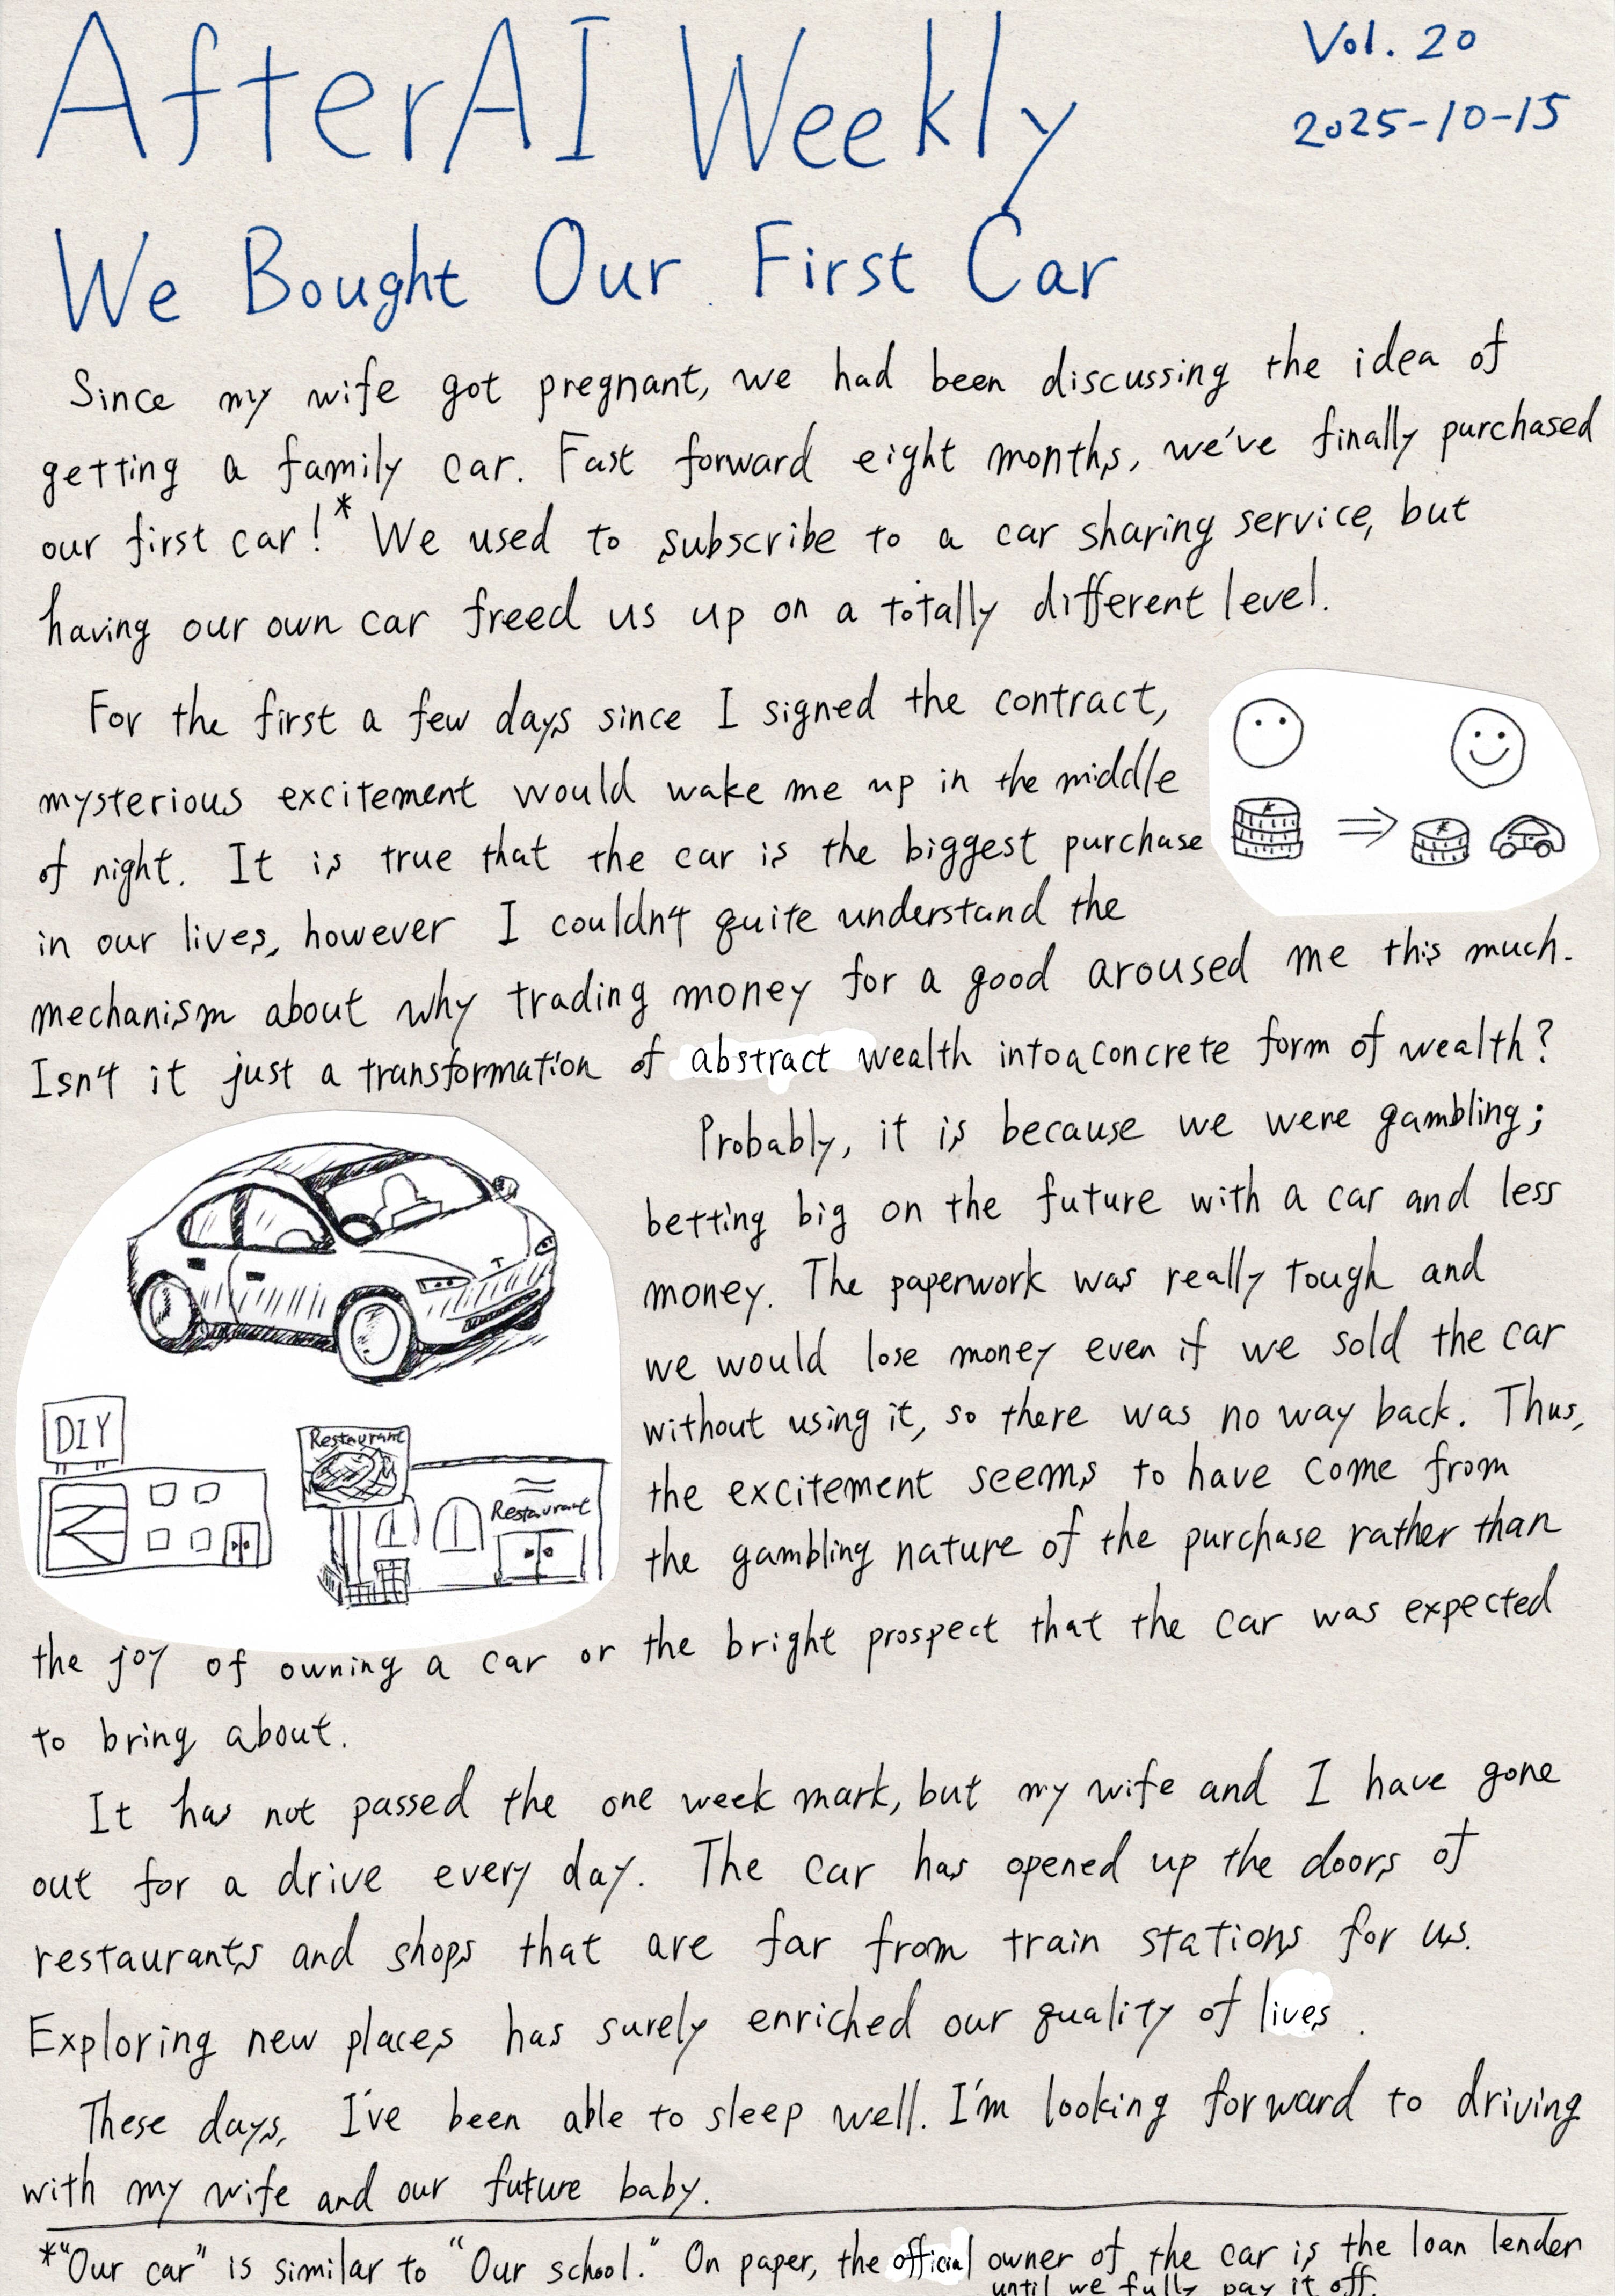 AfterAI Weekly
Vol. 20
2025-10-15
We Bought Our First Car
Since my wife got pregnant, we had been discussing the idea of
getting a family car. Fast forward eight months, we've finally purchased
our first car!* We used to subscribe to a car sharing service, but
having our own car freed us up on a totally different level.
For the first a few days since I signed the contract,
mysterious excitement would wake me up in the middle
of night. It is true that the car is the biggest purchase
in our lives, however I couldn't quite understand the
mechanism about why trading money for a good aroused me this much.
Isn't it just a transformation of abstract wealth into a concrete form of wealth?
Probably, it is because we were gambling;
betting big on the future with a car and less
money. The paperwork was really tough and
we would lose money even if we sold the car
without using it, so there was no way back. Thus,
the excitement seems to have come from
the gambling nature of the purchase rather than
the joy of owning a car or the bright prospect that the car was expected
to bring about.
DIY
Restaurant
Restaurant
It has not passed the one week mark, but my wife and I have gone
out for a drive every day. The car has opened up the doors of
restaurants and shops that are far from train stations for us.
Exploring new places has surely enriched our quality of lives.
These days, I've been able to sleep well. I'm looking forward to driving
with my wife and our future baby.
*"Our car" is similar to "Our school." On paper, the official owner of the car is the loan lender
until we fully pay it off.